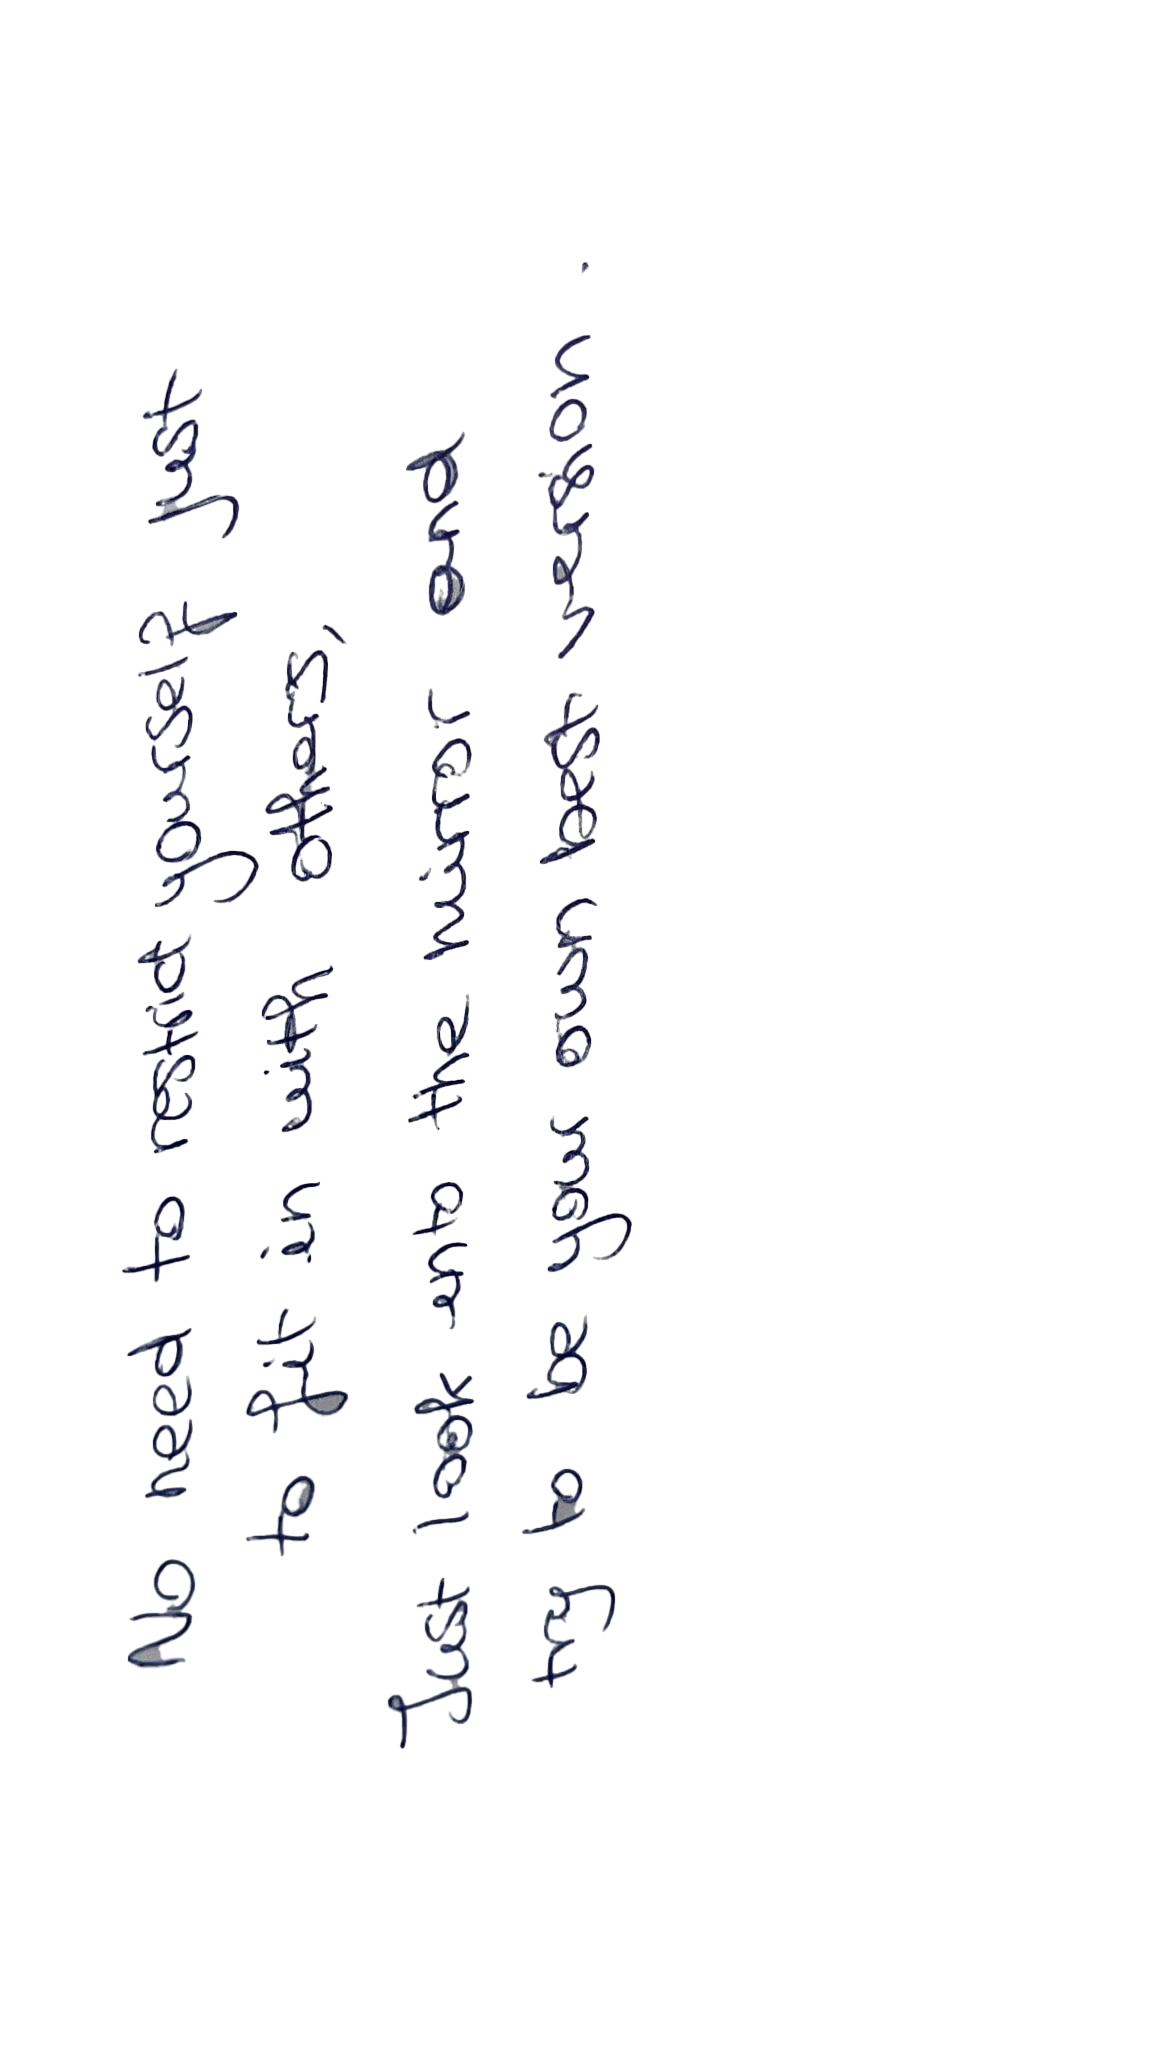 No need to restrict yourself just
to fit in with others,
Just look into the mirror and
try to be your own best version .